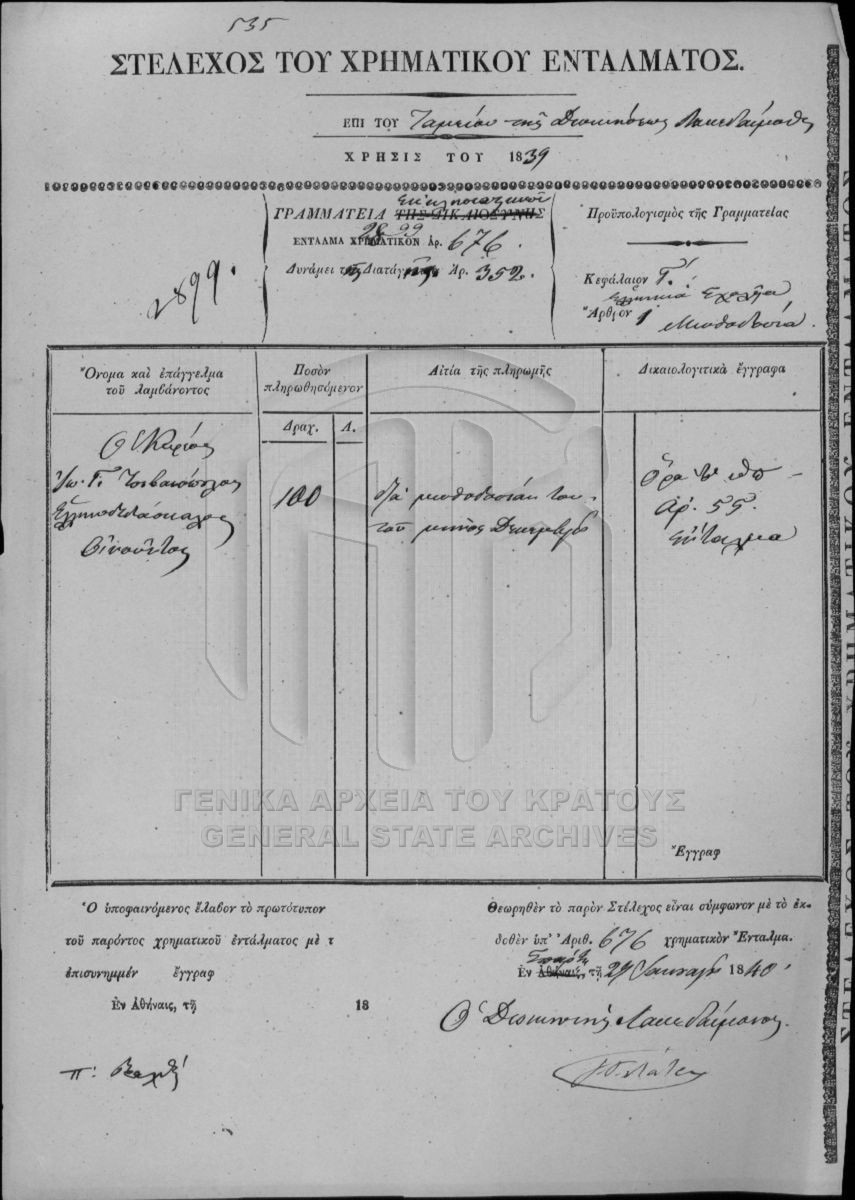 535
ΣΤΕΛΕΧΟΣ ΤΟΥ ΧΡΗΜΑΤΙΚΟΥ ΕΝΤΑΛΜΑΤΟΣ.
ΕΠΙ ΤΟΥ Ταμείου της Διοικήσεως Λακεδαίμονος
ΧΡΗΣΙΣ ΤΟΥ 1839
Εκκλησιαστικών
ΓΡΑΜΜΑΤΕΙΑ ΤΗΣ ΔΙΚΑΙΟΣΥΝΗΣ
2899
ΕΝΤΑΛΜΑ ΧΡΗΜΑΤΙΚΟΝ Ἀρ. 676.
Δυνάμει τῆς Διαταγῆς Ἀρ. 352.
2899.
Προϋπολογισμὸς τῆς Γραμματείας
Κεφάλαιον Γ.
Ελληνικά Σχολεία
Ἄρθρον 1 Μισθοδοσία.
Ὄνομα καὶ ἐπάγγελμα τοῦ λαμβάνοντος
Ποσὸν πληρωθησόμενον
Αἰτία τῆς πληρωμῆς
Δικαιολογιτικὰ ἔγγραφα
Δραχ. Λ.
Ὁ Κύριος
Ἰω. Γ.
Ἑλληνοδιδάσκαλος
Οἰνοῦντος
100
διὰ μισθοδοσίαν του
τοῦ μηνὸς Δεκεμβρίου
Ὅρα
Ἀρ. 55.
Ἔνταλμα
Ἔγγραφ
ΓΕΝΙΚΑ ΑΡΧΕΙΑ ΤΟΥ ΚΡΑΤΟΥΣ
GENERAL STATE ARCHIVES
Ὁ ὑποφαινόμενος ἔλαβον τὸ πρωτότυπον
τοῦ παρόντος χρηματικοῦ ἐντάλματος μὲ τ
ἐπισυνημμέν ἔγγραφ
Ἐν Ἀθήναις, τῇ 18
Θεωρηθὲν τὸ παρὸν Στέλεχος εἶναι σύμφωνον μὲ τὸ ἐκ-
δοθὲν ὑπ' Ἀριθ. 676 χρηματικὸν Ἔνταλμα.
Σπάρτῃ
Ἐν Ἀθήναις, τῇ 29 Ἰανουαρίου 1840
Ὁ Διοικητὴς Λακεδαίμονος.